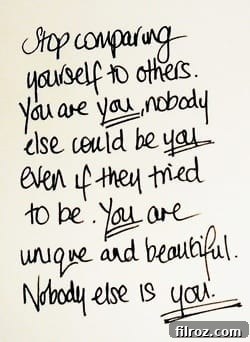 Stop comparing
yourself to others.
You are you, nobody
else could be you
even if they tried
to be. You are
unique and beautiful.
Nobody else is you.
filroz.com